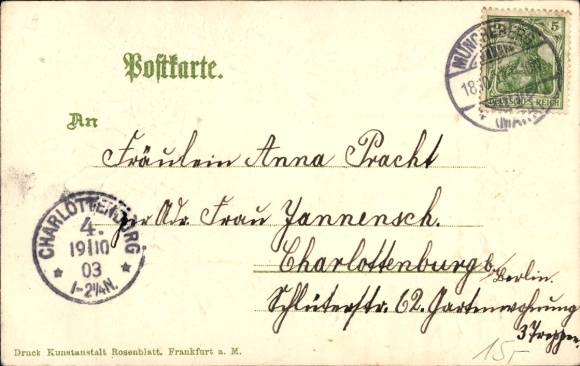 Postkarte.
MÜNCHEBERG
18.10
(MARK)
5
DEUTSCHES REICH
An
Fräulein Anna Pracht
per Adr. Frau Jannensch.
Charlottenburg b/Berlin.
Schlüterstr. 62. Gartenwohnung
3 Treppen.
CHARLOTTENBURG
4.
19|10
03
1-2½N.
Druck Kunstanstalt Rosenblatt, Frankfurt a. M.
15,-